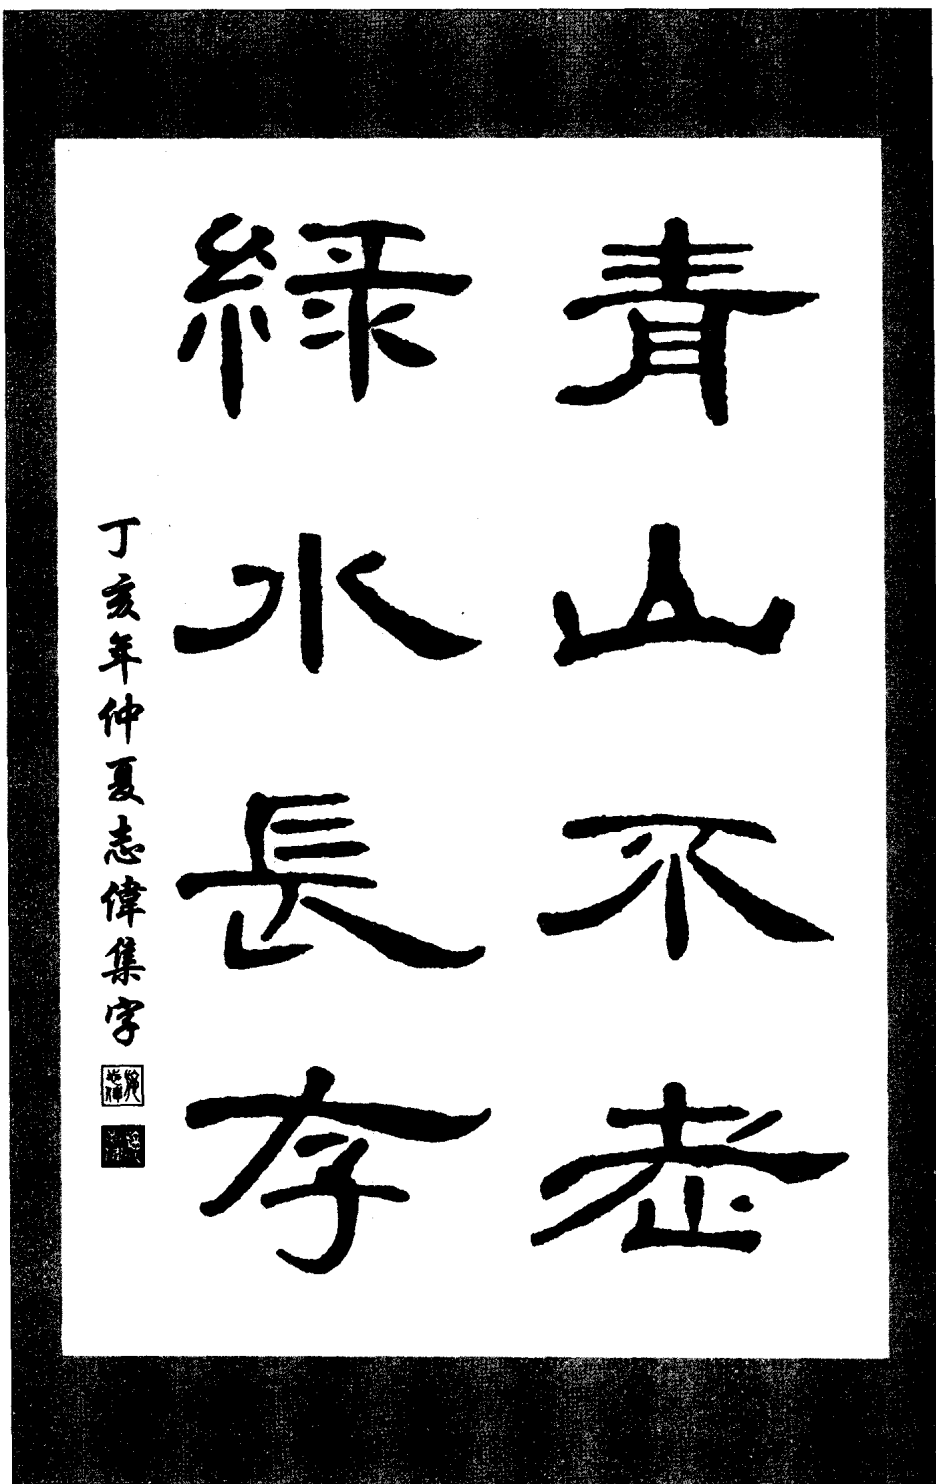 青山不老
綠水長存
丁亥年仲夏志偉集字